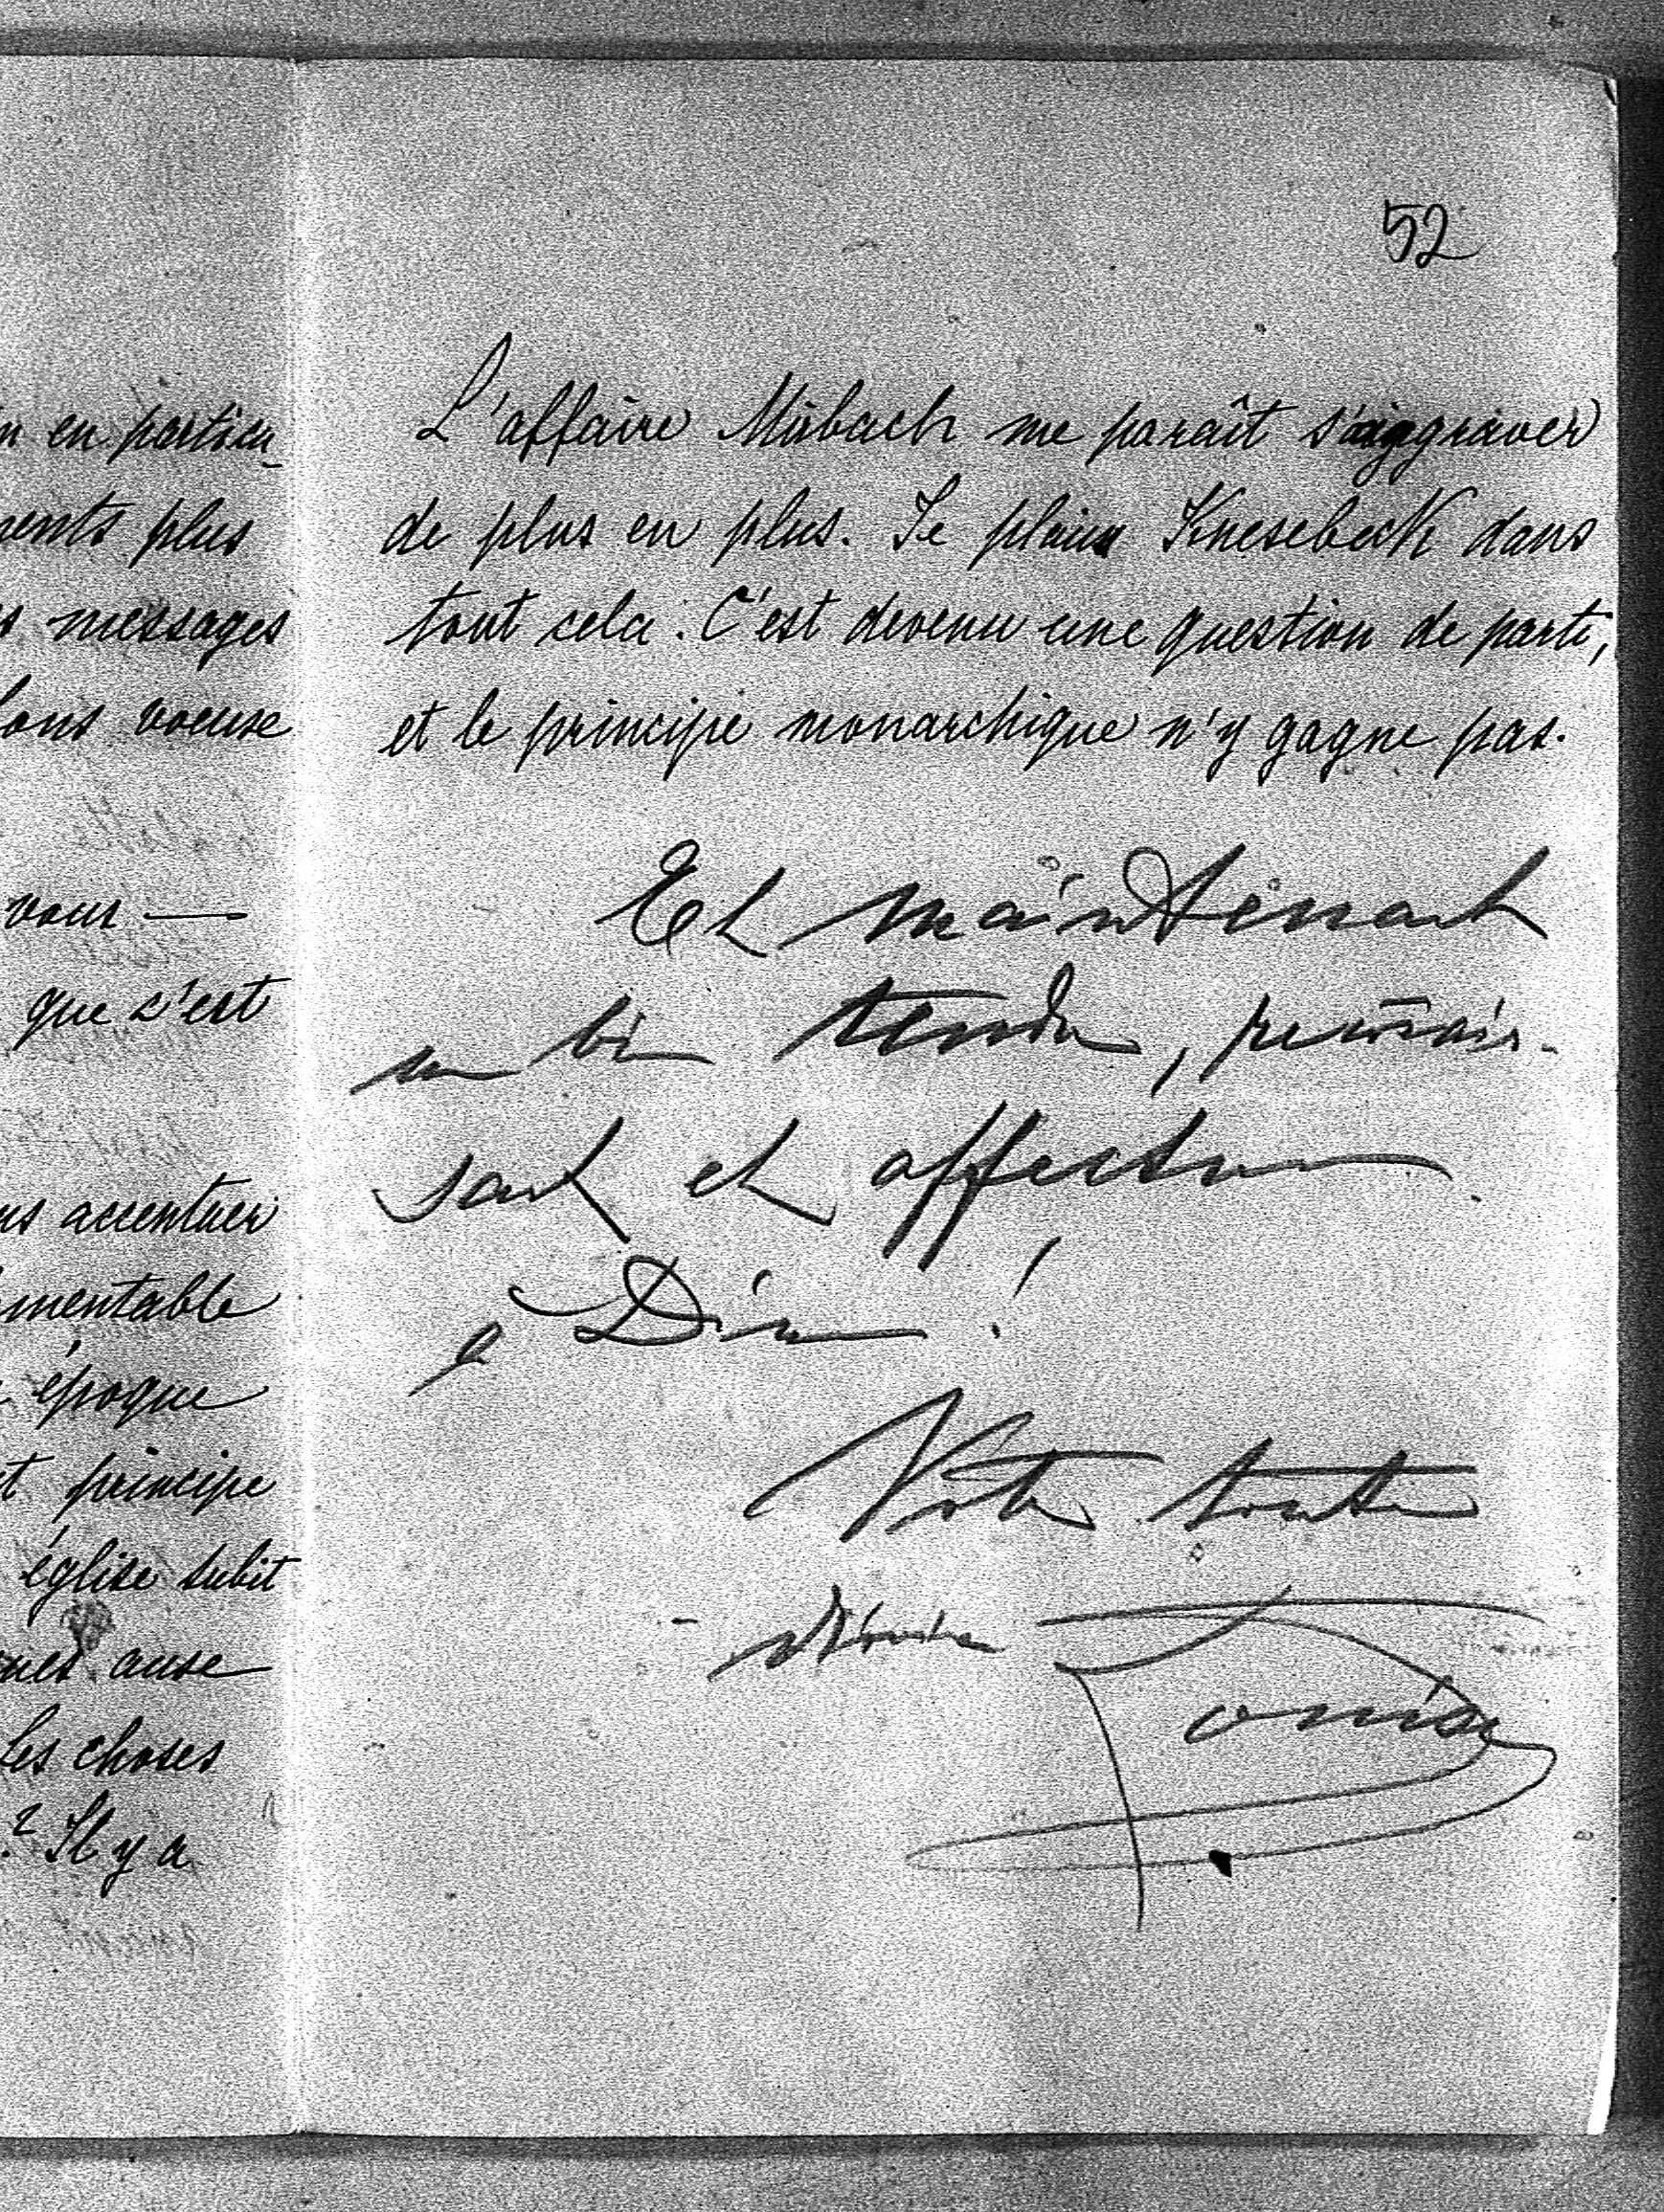 n en particu-
ments plus
s messages
bons voeuse
vous —
que c'est
us accentuer
mentable
époque
t principe
église subit
ause
les choses
? Il y a
52
L'affaire Mirbach me paraît s'aggraver
de plus en plus. Je plains Knesebeck dans
tout cela. C'est devenu une question de parti,
et le principe monarchique n'y gagne pas.
Et maintenant
un bien tendre, reconnais-
sant et affectueux
à Dieu!
Votre toute
dévouée
Louise